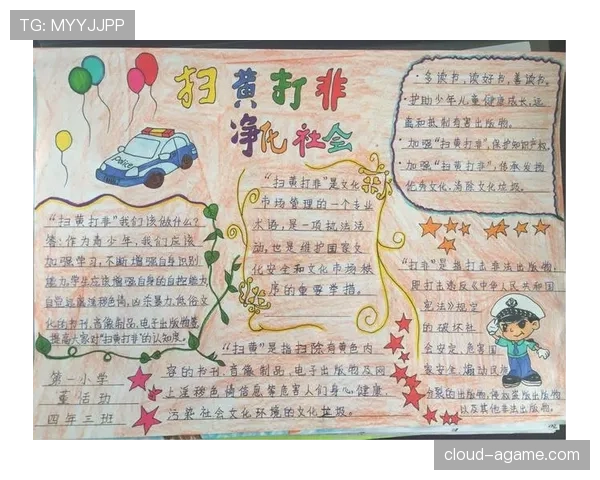 TG: MYYJJPP
扫黄打非
净化社会
Police
·多读书，读好书，善读书。
·护助少年儿童健康成长，远
离和抵制有害出版物。
·加强"扫黄打非"，保护知识产权。
·加强"扫黄打非"，传承发扬
优秀文化，消除文化垃圾。
"扫黄打非"是文化
市场管理的一个专业
术语，是一项执法活
动，也是维护国家文
化安全和文化市场秩
序的重要举措。
"扫黄打非"我们该做什么？
答：作为青少年，我们应该
加强学习，不断增强自身识别
能力，学生应该增强自身的自控能力
自觉远离淫秽色情，凶杀暴力，低俗文
化的书刊，音像制品，电子出版物等
提高大家对"扫黄打非"的认知度。
"打非"是指打击非法出版物，
即打击违反《中华人民共和国
宪法》规定
的破坏社
会安定，危害国
家安全，煽动民族
分裂的出版物，侵权盗版出版物
以及其他非法出版物。
"扫黄"是指扫除有黄色内
容的书刊，音像制品，电子出版物及网
上淫秽色情信息等危害人们身心健康，
污染社会文化环境的文化垃圾。
第一小学
董活动
四年三班
cloud-agame.com